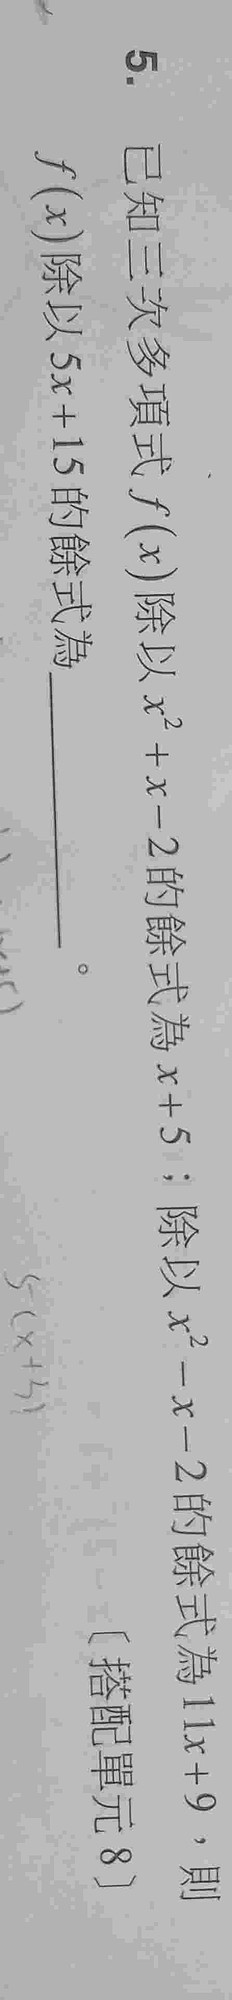 5. 已知三次多項式 f(x) 除以 x²+x−2 的餘式為 x+5；除以 x²−x−2 的餘式為 11x+9，則
f(x) 除以 5x+15 的餘式為＿＿＿＿＿＿。
〔搭配單元 8〕
5(x+3)